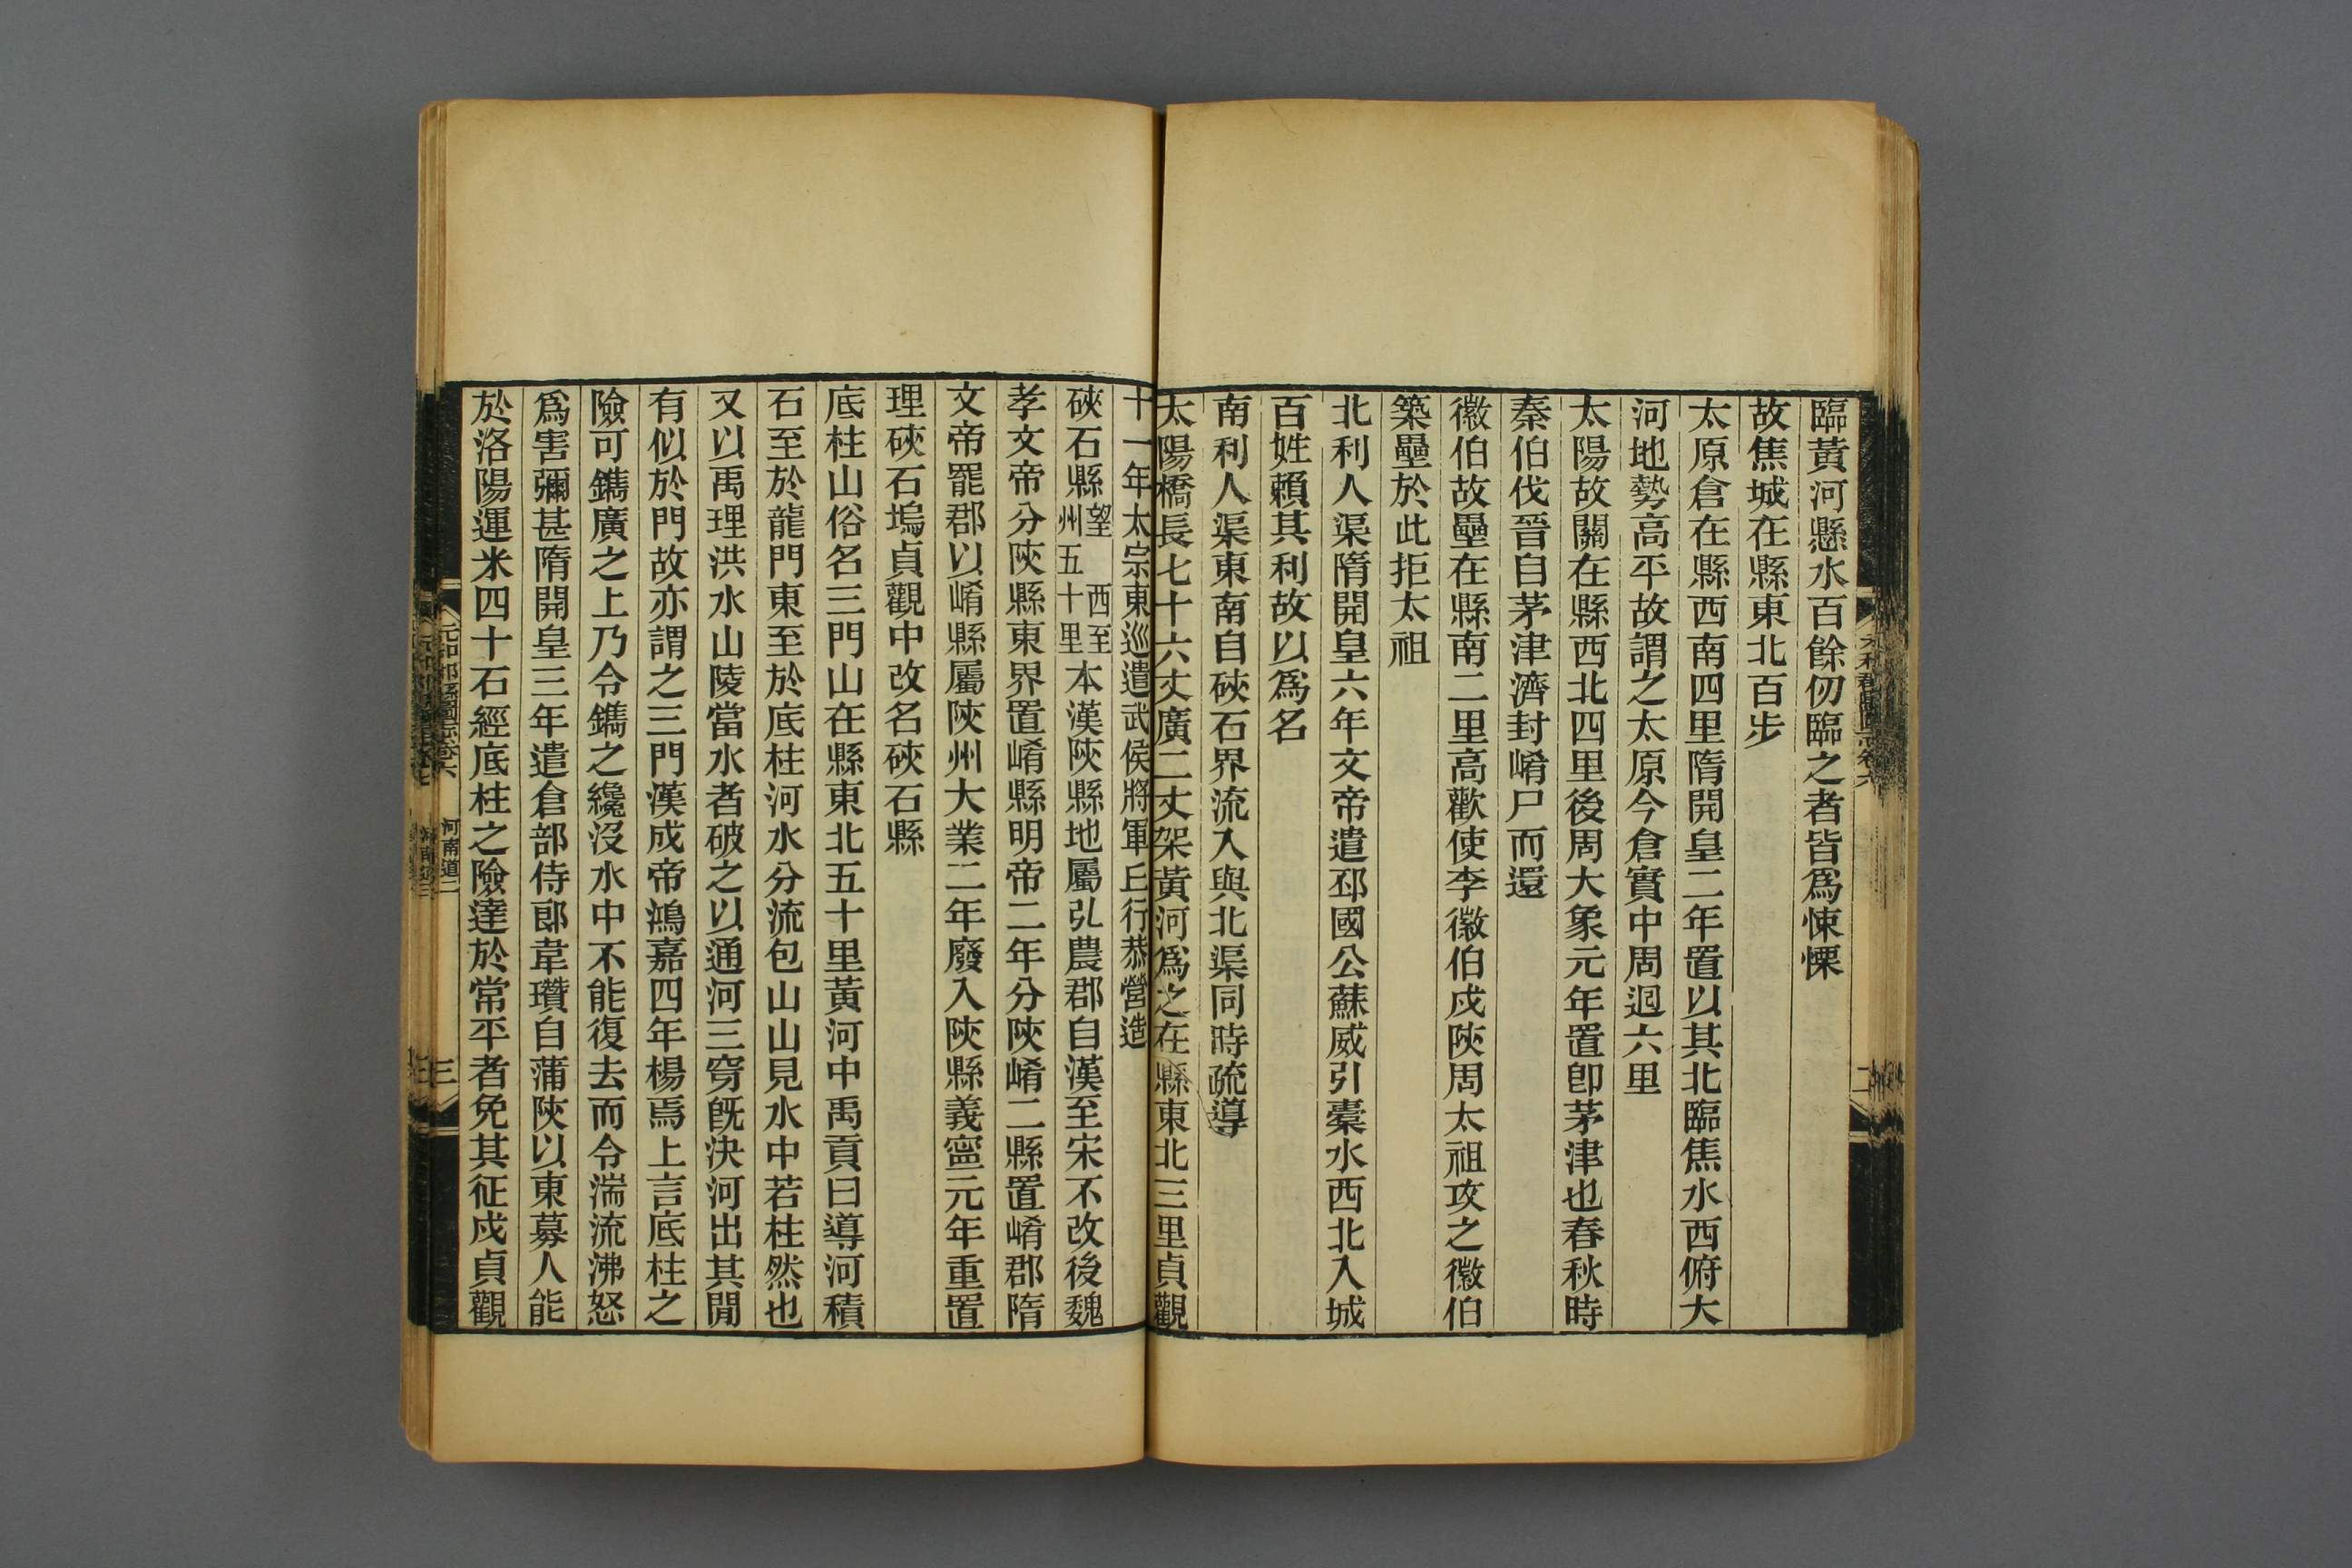 臨黃河懸水百餘仞臨之者皆爲悚慄
故焦城在縣東北百步
太原倉在縣西南四里隋開皇二年置以其北臨焦水西俯大
河地勢高平故謂之太原今倉實中周迴六里
太陽故關在縣西北四里後周大象元年置卽茅津也春秋時
秦伯伐晉自茅津濟封崤尸而還
徽伯故壘在縣南二里高歡使李徽伯戍陝周太祖攻之徽伯
築壘於此拒太祖
北利人渠隋開皇六年文帝遣邳國公蘇威引橐水西北入城
百姓賴其利故以爲名
南利人渠東南自硤石界流入與北渠同時疏導
太陽橋長七十六丈廣二丈架黃河爲之在縣東北三里貞觀
十一年太宗東巡遣武侯將軍丘行恭營造
硤石縣望 西至州五十里本漢陝縣地屬弘農郡自漢至宋不改後魏
孝文帝分陝縣東界置崤縣明帝二年分陝崤二縣置崤郡隋
文帝罷郡以崤縣屬陝州大業二年廢入陝縣義寧元年重置
理硤石塢貞觀中改名硤石縣
底柱山俗名三門山在縣東北五十里黃河中禹貢曰導河積
石至於龍門東至於底柱河水分流包山山見水中若柱然也
又以禹理洪水山陵當水者破之以通河三穿旣決河出其閒
有似於門故亦謂之三門漢成帝鴻嘉四年楊焉上言底柱之
險可鐫廣之上乃令鐫之纔沒水中不能復去而令湍流沸怒
爲害彌甚隋開皇三年遣倉部侍郎韋瓚自蒲陝以東募人能
於洛陽運米四十石經底柱之險達於常平者免其征戍貞觀
元和郡縣圖志卷六
河南道二
三